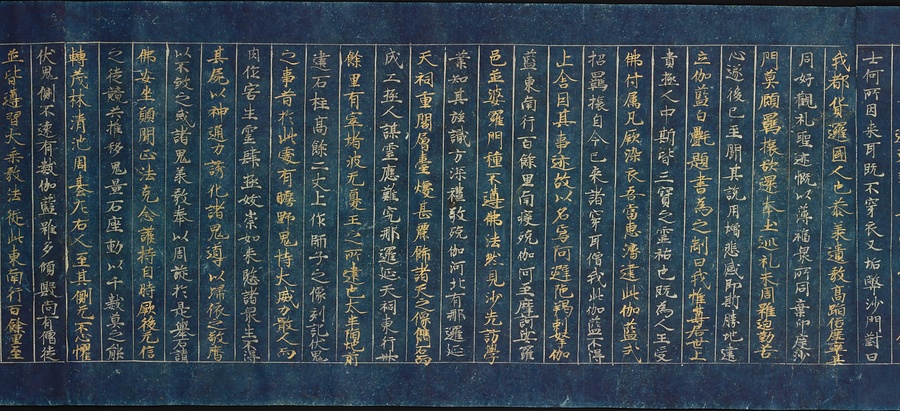 士何所因来耳既不穿衣又垢弊沙門對曰
我都貨邏國人也恭義遺教高蹈俗塵率其
同好觀礼聖迹慨以薄福衆所同棄印度沙
門莫顧羈旅欲還本土巡礼未周雖迫勤苦
心遂後已王聞其説用增悲感即斯勝地建
立伽藍白㲲題書為之制曰我惟尊居世上
貴極人中斯皆三寶之靈祐也既為人王受
佛付属凡厥染衣吾當惠濟建此伽藍式
招羈旅自今已来諸穿耳僧我此伽藍不得
止舍因其事迹故以名焉阿避陁羯剌拏伽
藍東南行百餘里南渡殑伽河至摩訶娑羅
邑並婆羅門種不遵佛法然見沙門先訪學
業知其強識方深禮敬殑伽河北有那邏延
天祠重閣層臺燠甚麗飾諸天之像鐫石而
成工極人謀靈應難究那邏延天祠東行卅
餘里有窣堵波无憂王之所建也大半陷地前
建石柱高餘二丈上作師子之像刻記伏鬼
之事昔於此處有曠野鬼恃大威力敢人血
肉作害生靈肆極妖祟如来愍諸衆生不得
其死以神通力誘化諸鬼導以歸依之敬齊
以不敎之戒諸鬼義教奉以周旋於是舉石請
佛安坐願聞正法克念護持自時厥後无信
之徒競共推移鬼置石座動以千數莫之能
轉茂林清池周基左右人至其側无不心懼
伏鬼側不遠有數伽藍雖多傾毀尚有僧徒
並皆遵習大乘教法從此東南行百餘里至